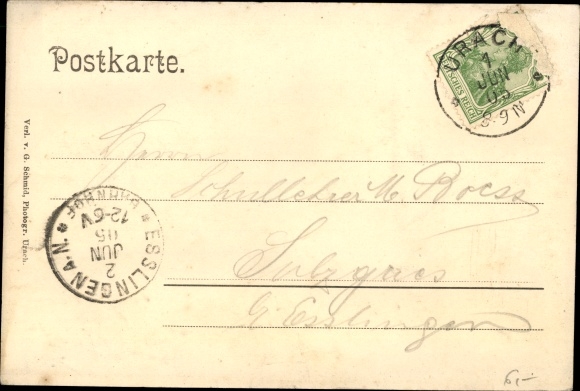 Postkarte.
URACH
1
JUN
05
8-9 N
DEUTSCHES REICH
Verl. v. G. Schmid, Photogr. Urach.
Herrn
Schullehrer M. Roess
Sulzgries
b/ Esslingen
ESSLINGEN A.N.
2
JUN
05
12-6V
BAHNHOF
6,-